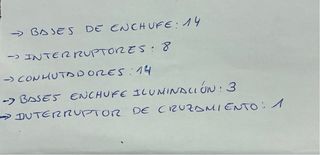 → BASES DE ENCHUFE: 14
→ INTERRUPTORES: 8
→ CONMUTADORES: 14
→ BASES ENCHUFE ILUMINACIÓN: 3
→ INTERRUPTOR DE CRUZAMIENTO: 1